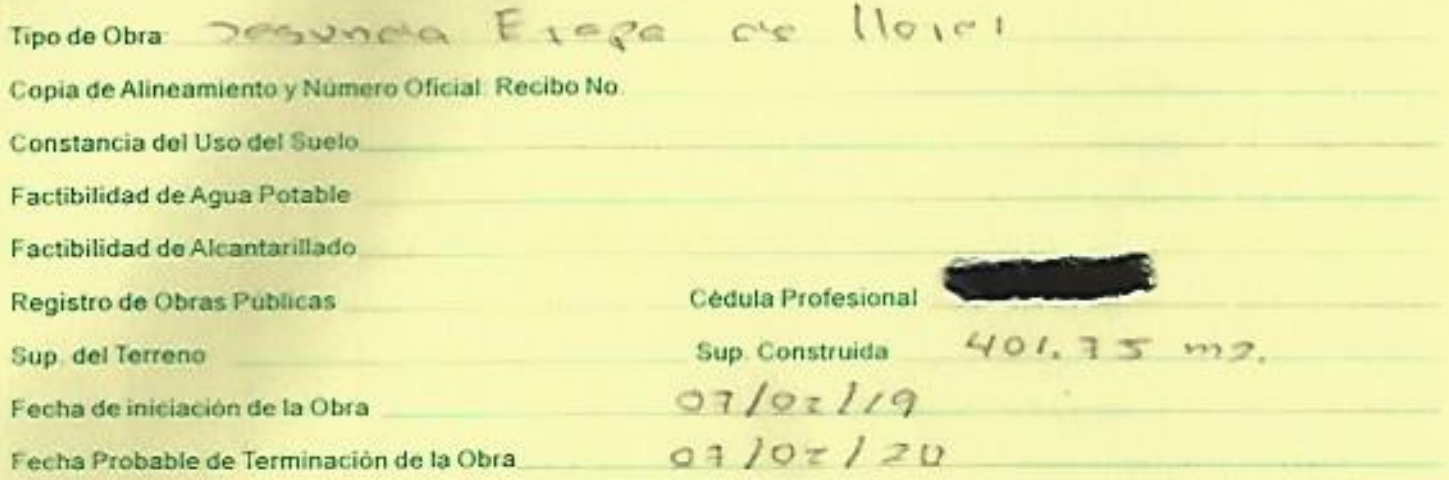 Tipo de Obra: Segunda Etapa de Hotel
Copia de Alineamiento y Número Oficial: Recibo No.
Constancia del Uso del Suelo
Factibilidad de Agua Potable
Factibilidad de Alcantarillado
Registro de Obras Públicas Cédula Profesional
Sup. del Terreno Sup. Construida 401.75 m2.
Fecha de iniciación de la Obra 07/02/19
Fecha Probable de Terminación de la Obra 07/02/20